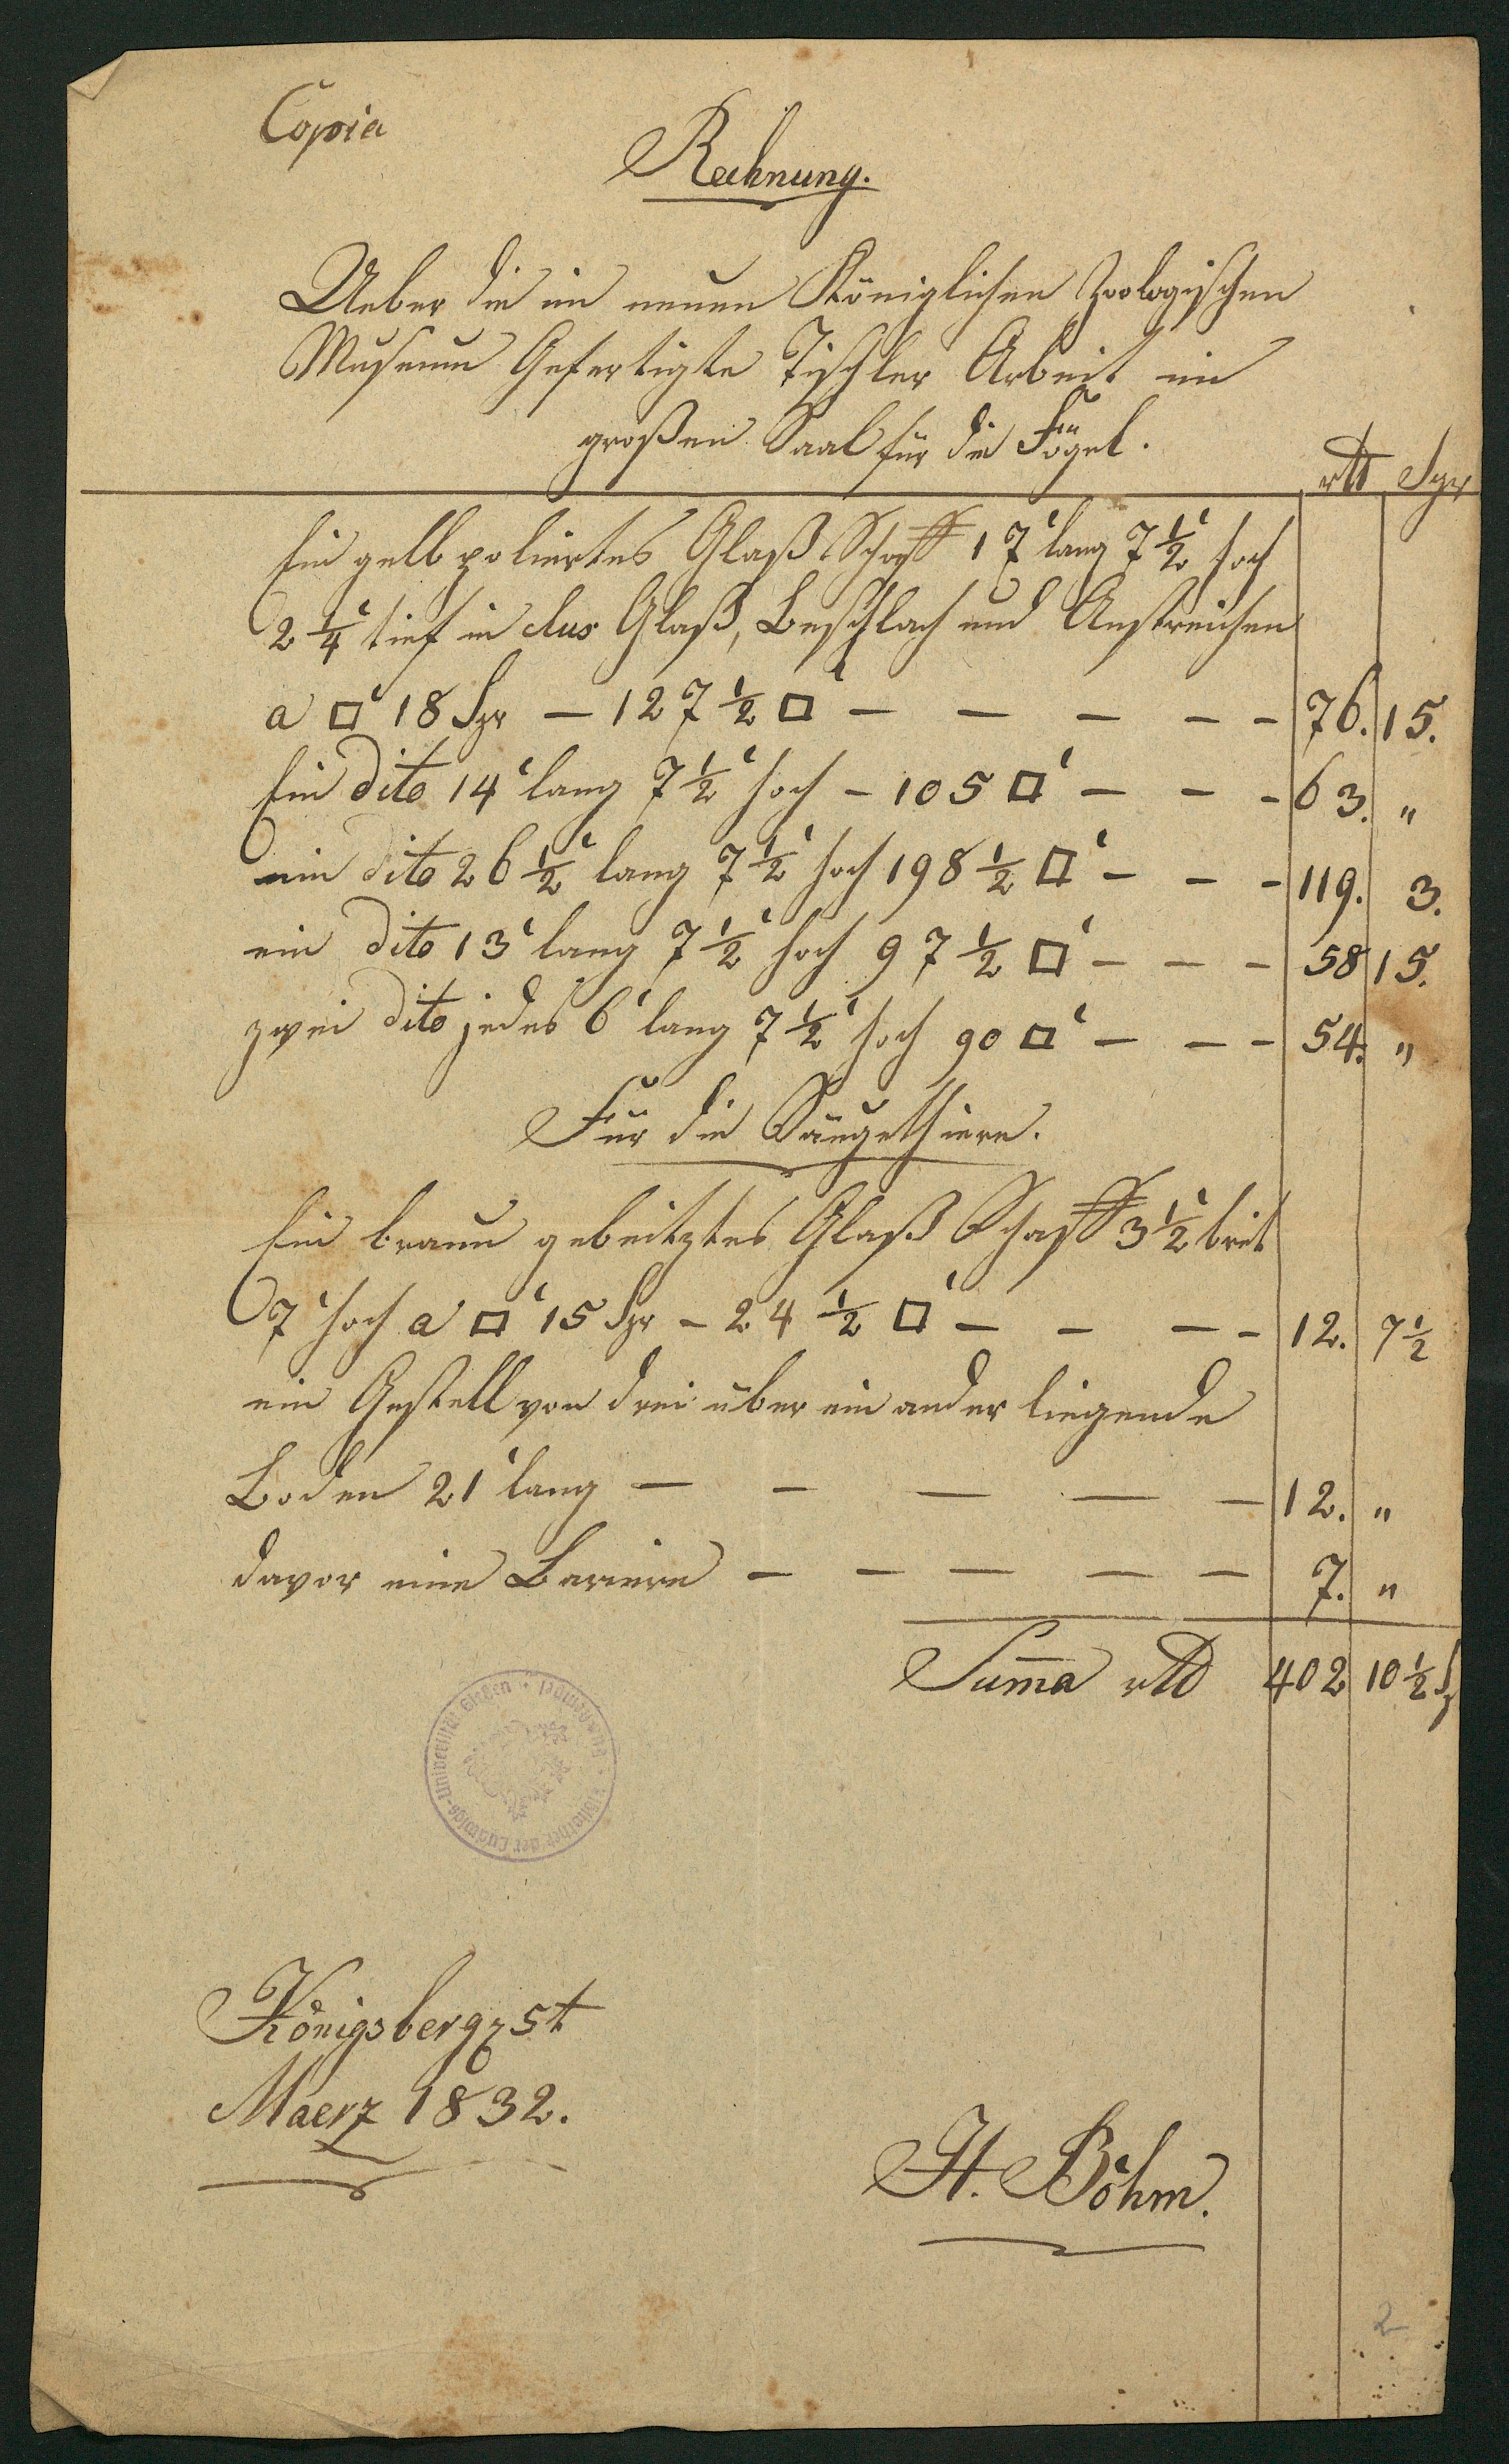 Copia
Rechnung.
Ueber die im neuen Königlichen Zoologischen
Museum Gefertigte Tischler Arbeit im
großen Saal für die Fögel.
rtl Sgr
Ein gelb poliertes Glaß Schaff 17' lang 7 1/2' hoch
2 1/4' tief in clus Glaß, Beschlach und Anstreichen
a □' 18 Sgr — 127 1/2 □' — — — — — 76. 15.
Ein dito 14' lang 7 1/2' hoch — 105 □' — — — 63. "
ein dito 26 1/2' lang 7 1/2' hoch 198 1/2 □' — — — 119. 3.
ein dito 13' lang 7 1/2' hoch 97 1/2 □' — — — 58 15.
zwei dito jedes 6' lang 7 1/2' hoch 90 □' — — — 54. "
Für die Säugethiere.
Ein braun gebeitztes Glaß Schaff 3 1/2' breit
7' hoch a □' 15 Sgr — 24 1/2 □' — — — — 12. 7 1/2
ein Gestell von drei über ein ander liegende
Boden 21' lang — — — — — 12. "
davor eine Bariere — — — — — 7. "
Suma rtl 402 10 1/2 Sg
Bibliothek der Ludwigs-Universität Gießen
Königsberg 5t
Maerz 1832.
H. Böhm.
2